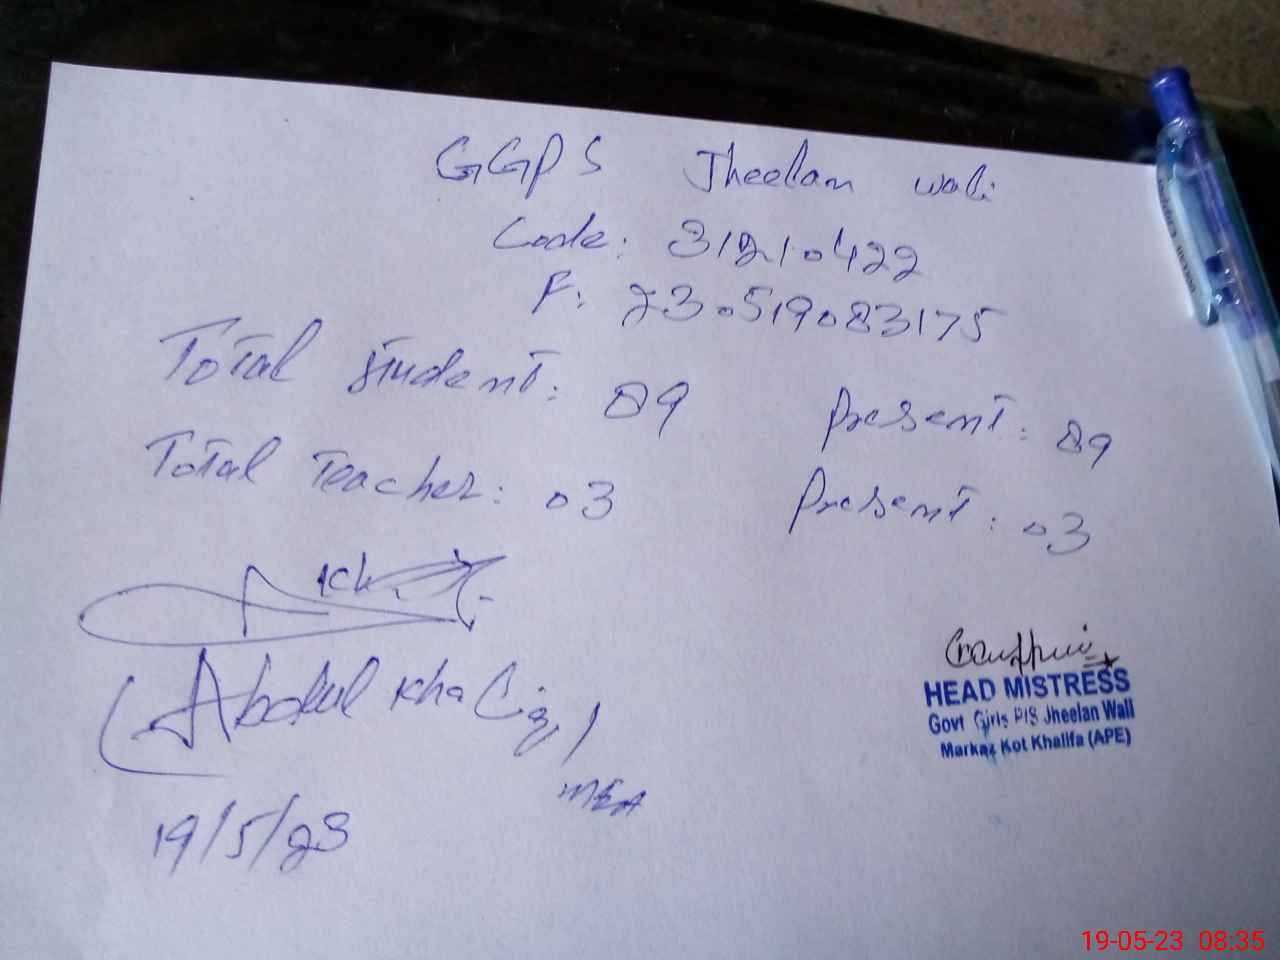 GGPS Jheelan wali
Code: 31210422
F: 230519083175
Total student: 89 Present: 89
Total Teacher: 03 Present: 03
(Abdul Khaliq)
MEA
19/5/23
HEAD MISTRESS
Govt Girls P/S Jheelan Wali
Markaz Kot Khalifa (APE)
19-05-23 08:35